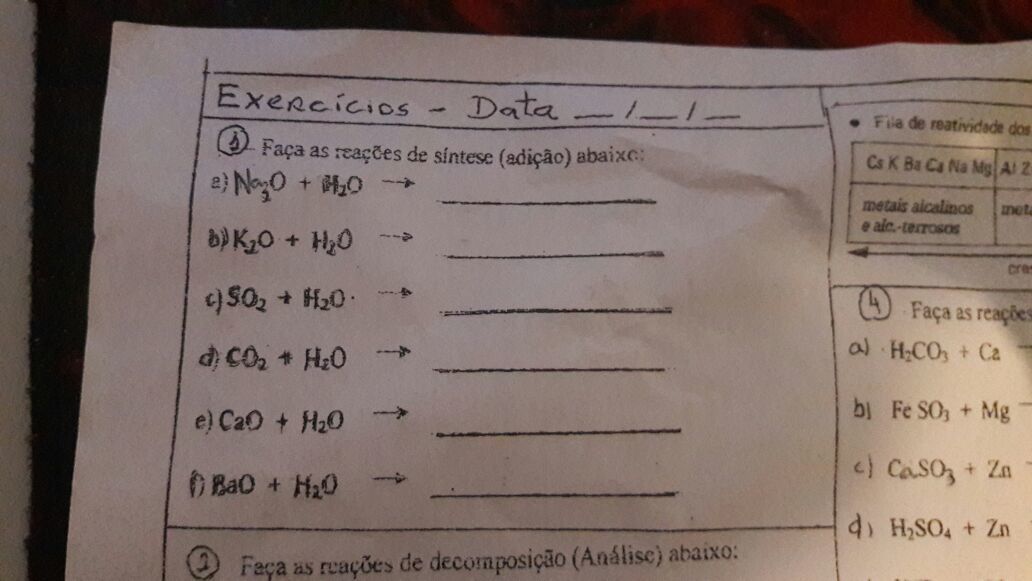 Exercícios - Data __/__/__
1 Faça as reações de síntese (adição) abaixo:
a) Na2O + H2O →
b) K2O + H2O →
c) SO2 + H2O →
d) CO2 + H2O →
e) CaO + H2O →
f) BaO + H2O →
2 Faça as reações de decomposição (Análise) abaixo:
• Fila de reatividade dos
Cs K Ba Ca Na Mg Al Z
metais alcalinos
e alc.-terrosos
4 Faça as reações
a) H2CO3 + Ca
b) Fe SO3 + Mg
c) CaSO3 + Zn
d) H2SO4 + Zn